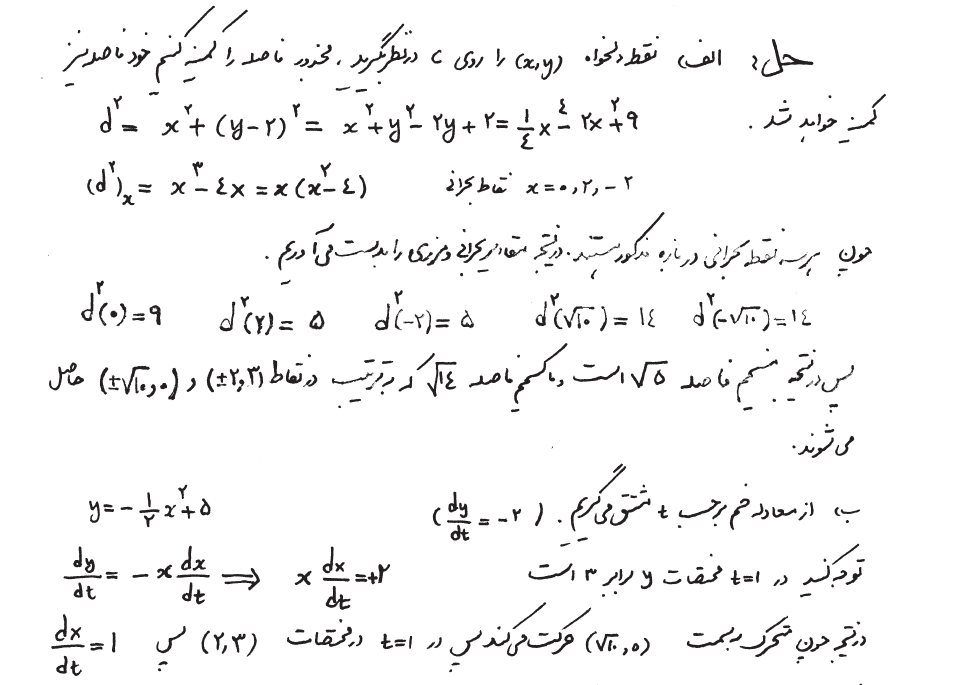 حل: الف) نقطه دلخواه (x,y) را روی C در نظر بگیرید، مجذور فاصله را کمینه کنیم خود فاصله نیز
کمینه خواهد شد.
d^۲ = x^۲ + (y-۲)^۲ = x^۲ + y^۲ - ۲y + ۲ = \frac{۱}{٤}x^٤ - ۲x^۲ + ۹
(d^۲)_x = x^۳ - ٤x = x(x^۲ - ٤) نقاط بحرانی x = ۰, ۲, -۲
چون هر سه نقطه بحرانی در بازه مذکور هستند. در نتیجه مقادیر بحرانی و مرزی را بدست می‌آوریم.
d^۲(۰) = ۹ d^۲(۲) = ۵ d^۲(-۲) = ۵ d^۲(√۱۰) = ۱٤ d^۲(-√۱۰) = ۱٤
پس در نتیجه مینیمم فاصله √۵ است و ماکسیمم فاصله √۱٤ که به ترتیب در نقاط (±۲,۳) و (±√۱۰,۰) حاصل
می‌شوند.
ب) از معادله خم برحسب t مشتق می‌گیریم. (\frac{dy}{dt} = -۲) y = -\frac{۱}{۲}x^۲ + ۵
توجه کنید در t=۱ مختصات y برابر ۳ است \frac{dy}{dt} = -x\frac{dx}{dt} ⟹ x\frac{dx}{dt} = +۲
در نتیجه چون متحرک به سمت (√۱۰,۰) حرکت می‌کند پس در t=۱ در مختصات (۲,۳) پس \frac{dx}{dt} = ۱